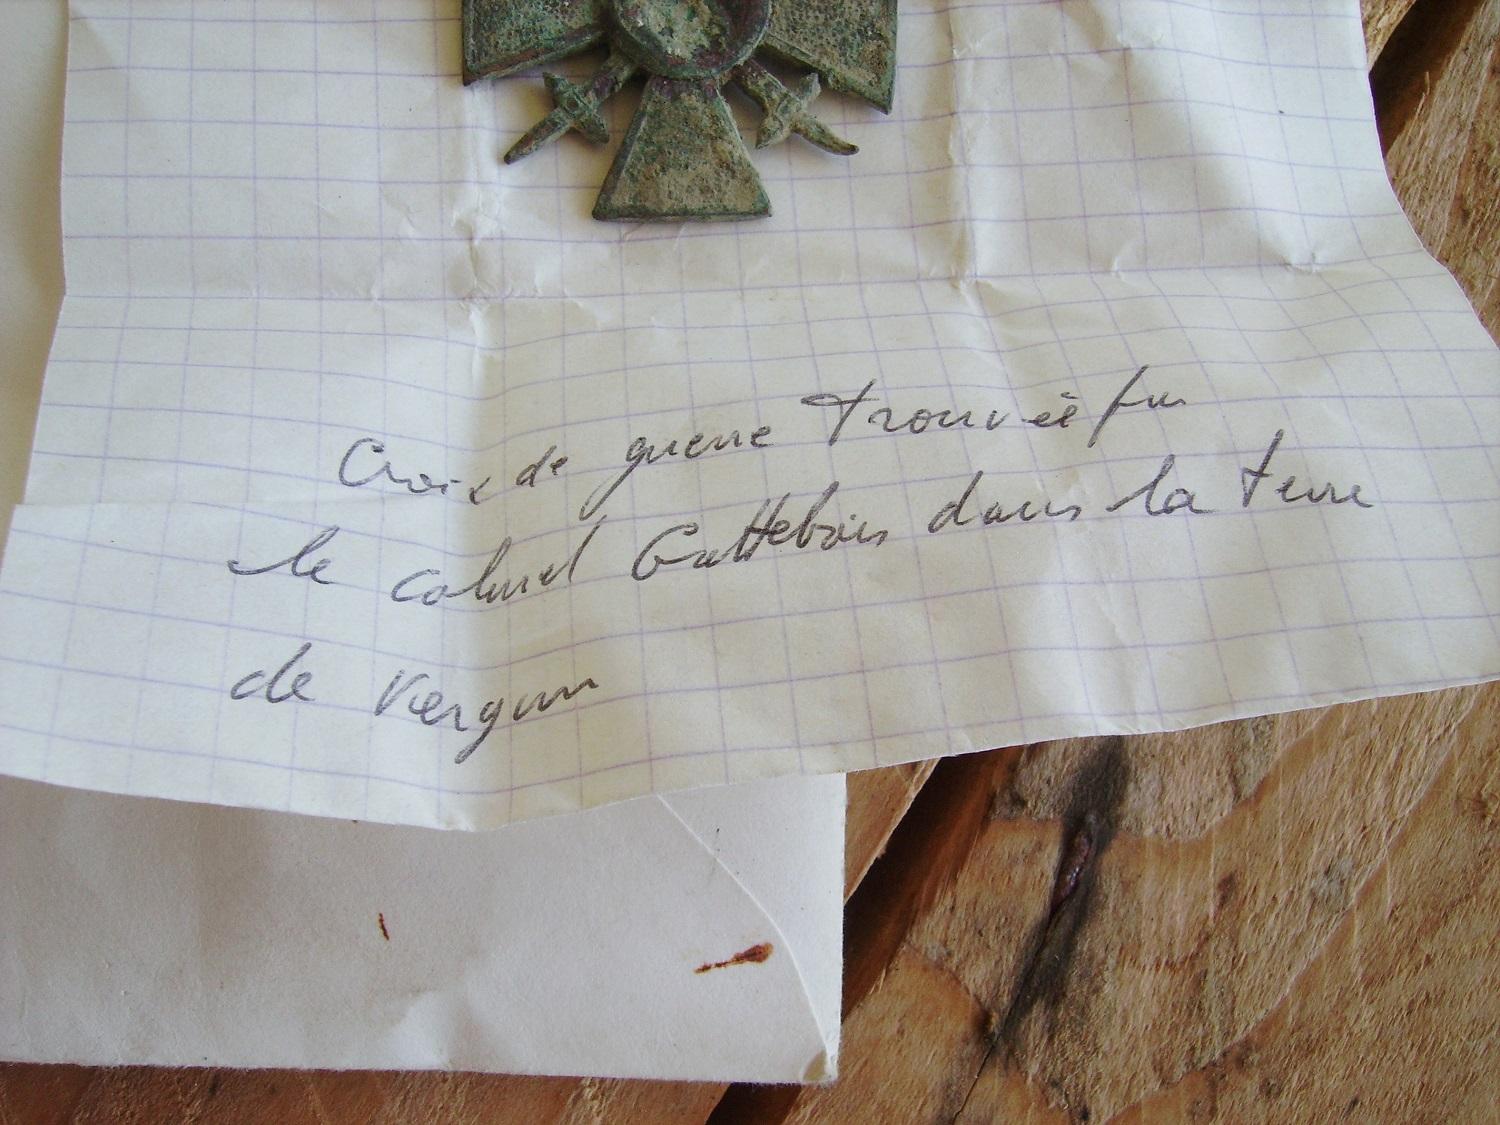 Croix de guerre trouvée par
le colonel Gattebois dans la terre
de